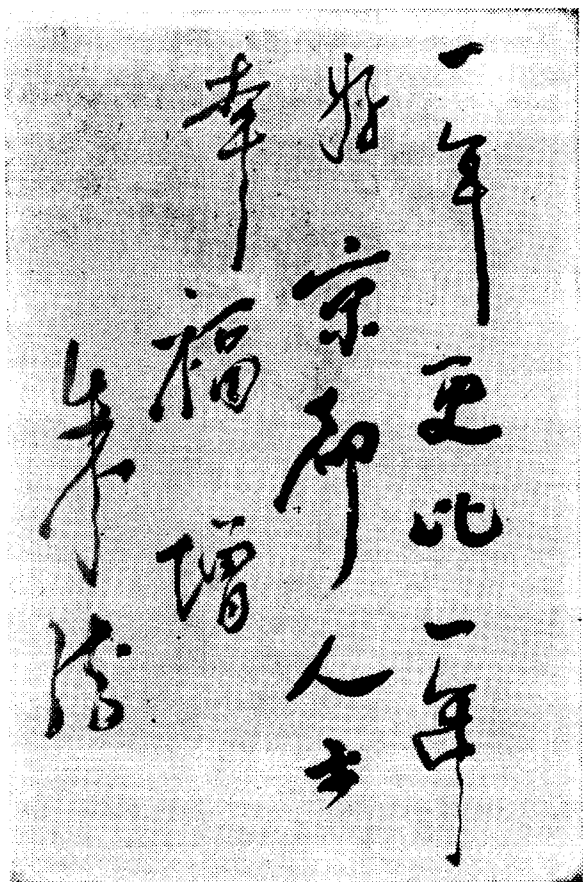 一年更比一年
好京都人士
幸福增
朱